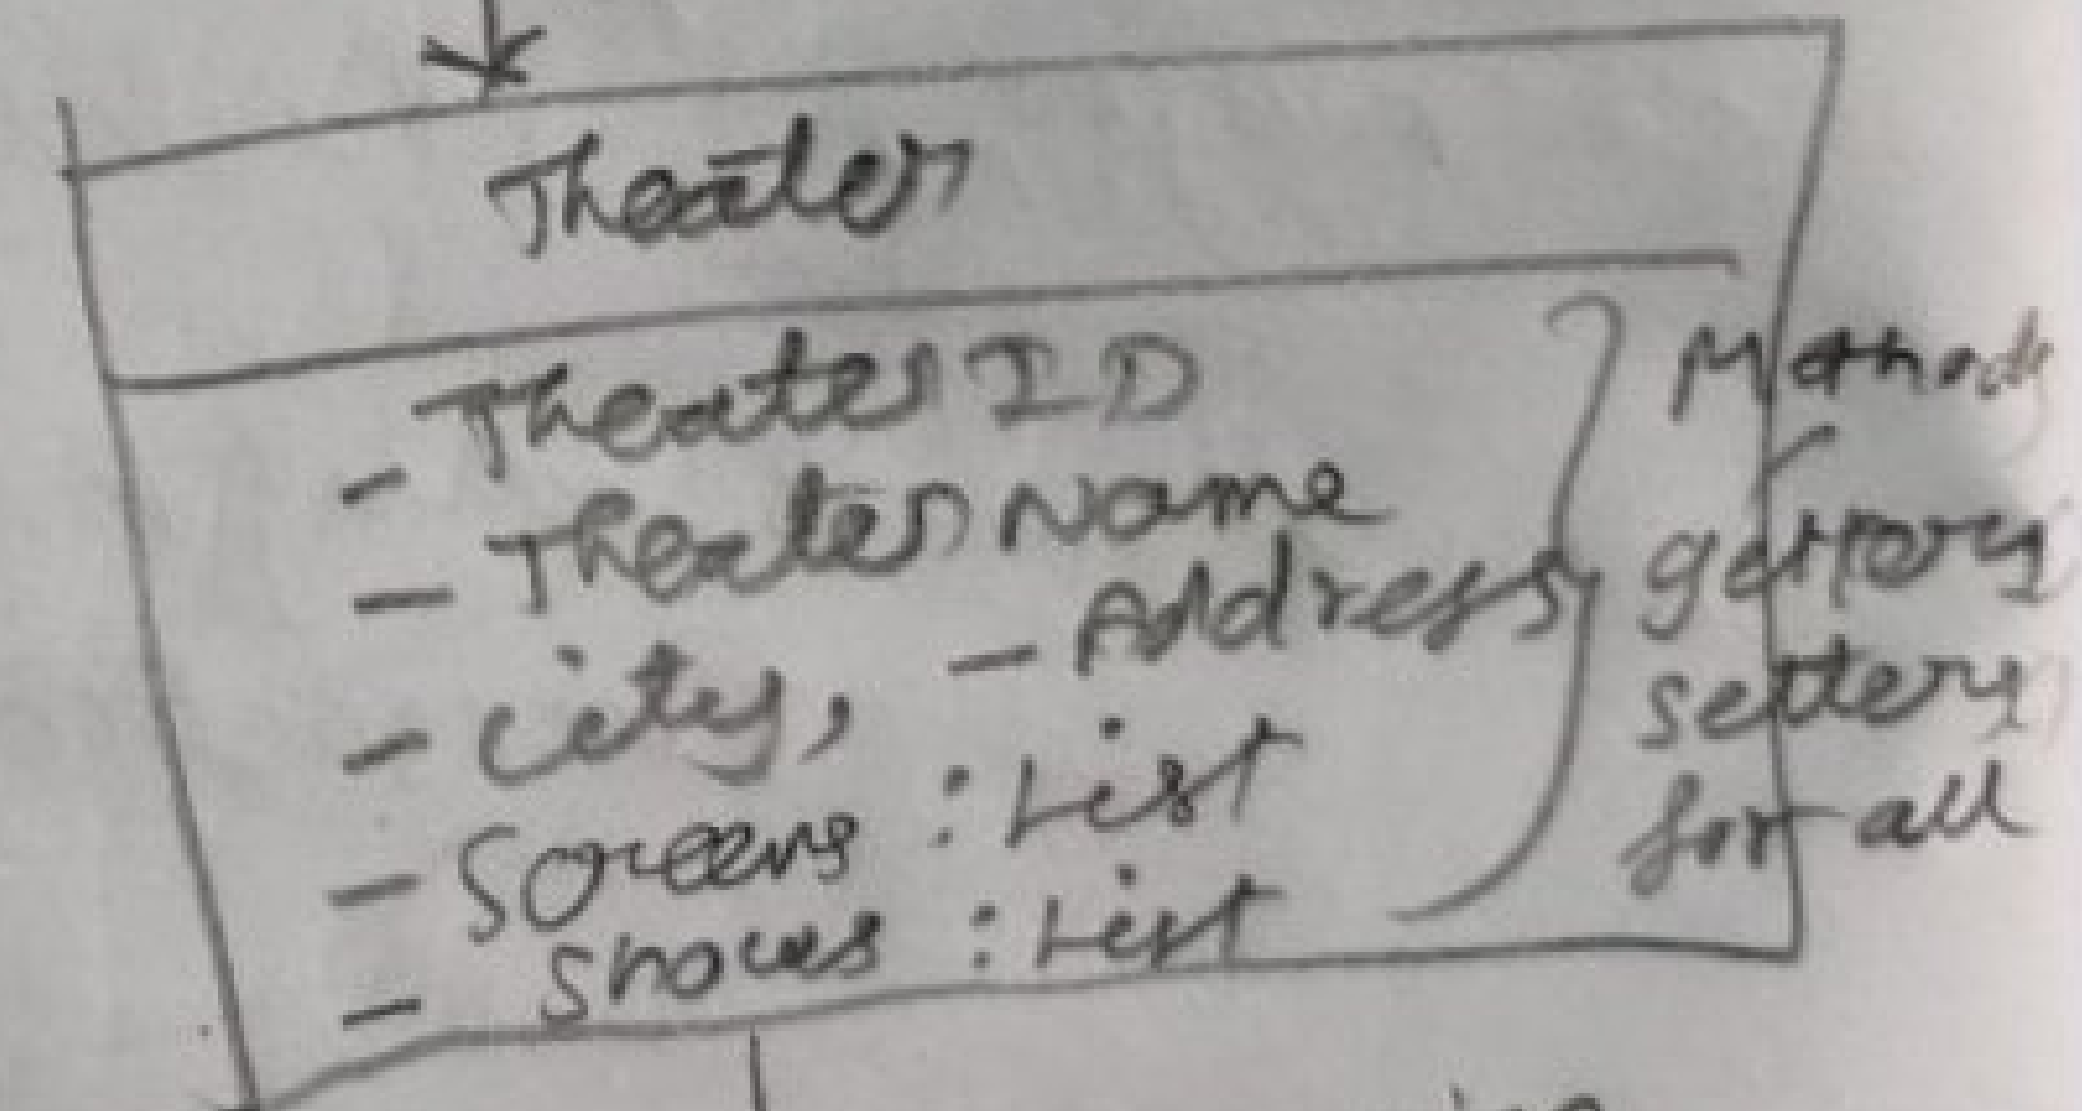 Theater
- Theater ID
- Theater Name
- City, - Address
- Screens : List
- Shows : List
Methods
getters
setters
for all